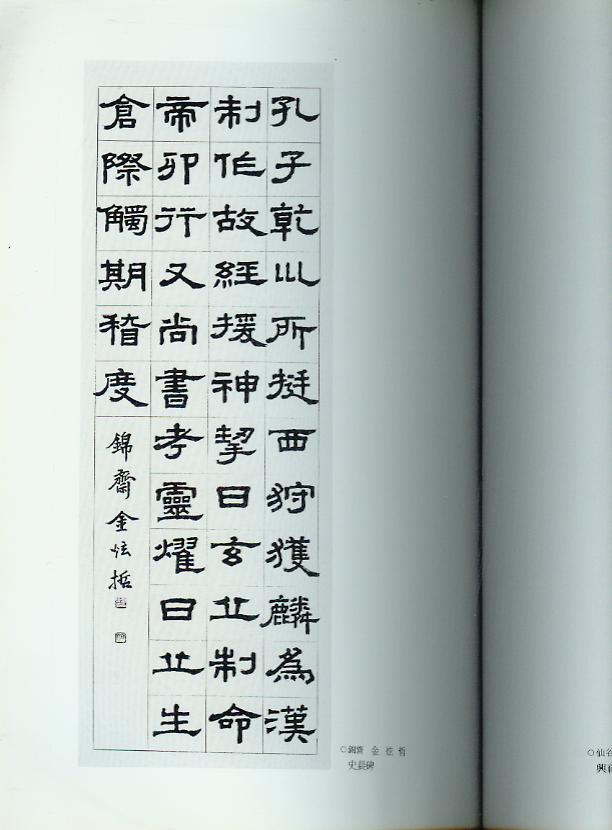 孔子乾以所挺西狩獲麟為漢
制作故経援神挈曰玄丘制命
帝卯行又尚書考靈燿曰丘生
倉際觸期稽度
錦齋金炫哲
○錦齋 金炫哲
史晨碑
○仙
興